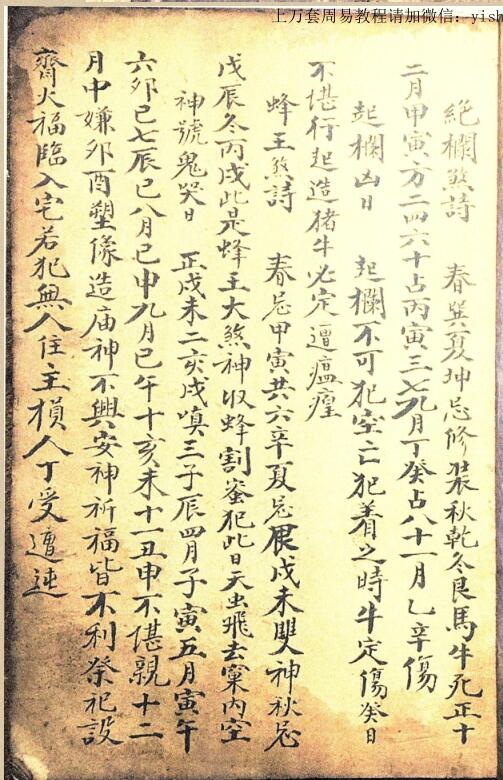 上万套周易教程请加微信：yish
絕欄煞詩 春巽夏坤忌修裝秋乾冬艮馬牛死正十
二月甲寅方二四六十占丙寅三七九月丁癸占八十一月乙辛傷
起欄凶日 起欄不可犯空亡犯着之時牛定傷癸日
不堪行起造猪牛必定遭瘟瘴
蜂王煞詩 春忌甲寅共六辛夏忌辰戌未雙神秋忌
戊辰冬丙戌此是蜂王大煞神收蜂割蜜犯此日天虫飛去窠內空
神號鬼哭日 正戌未二亥戌嗔三子辰四月子寅五月寅午
六卯巳七辰巳八月巳申九月巳午十亥未十一丑申不堪親十二
月中嫌卯酉塑像造庙神不興安神祈福皆不利祭祀設
齋火福臨入宅若犯無人住主損人丁受遭迍